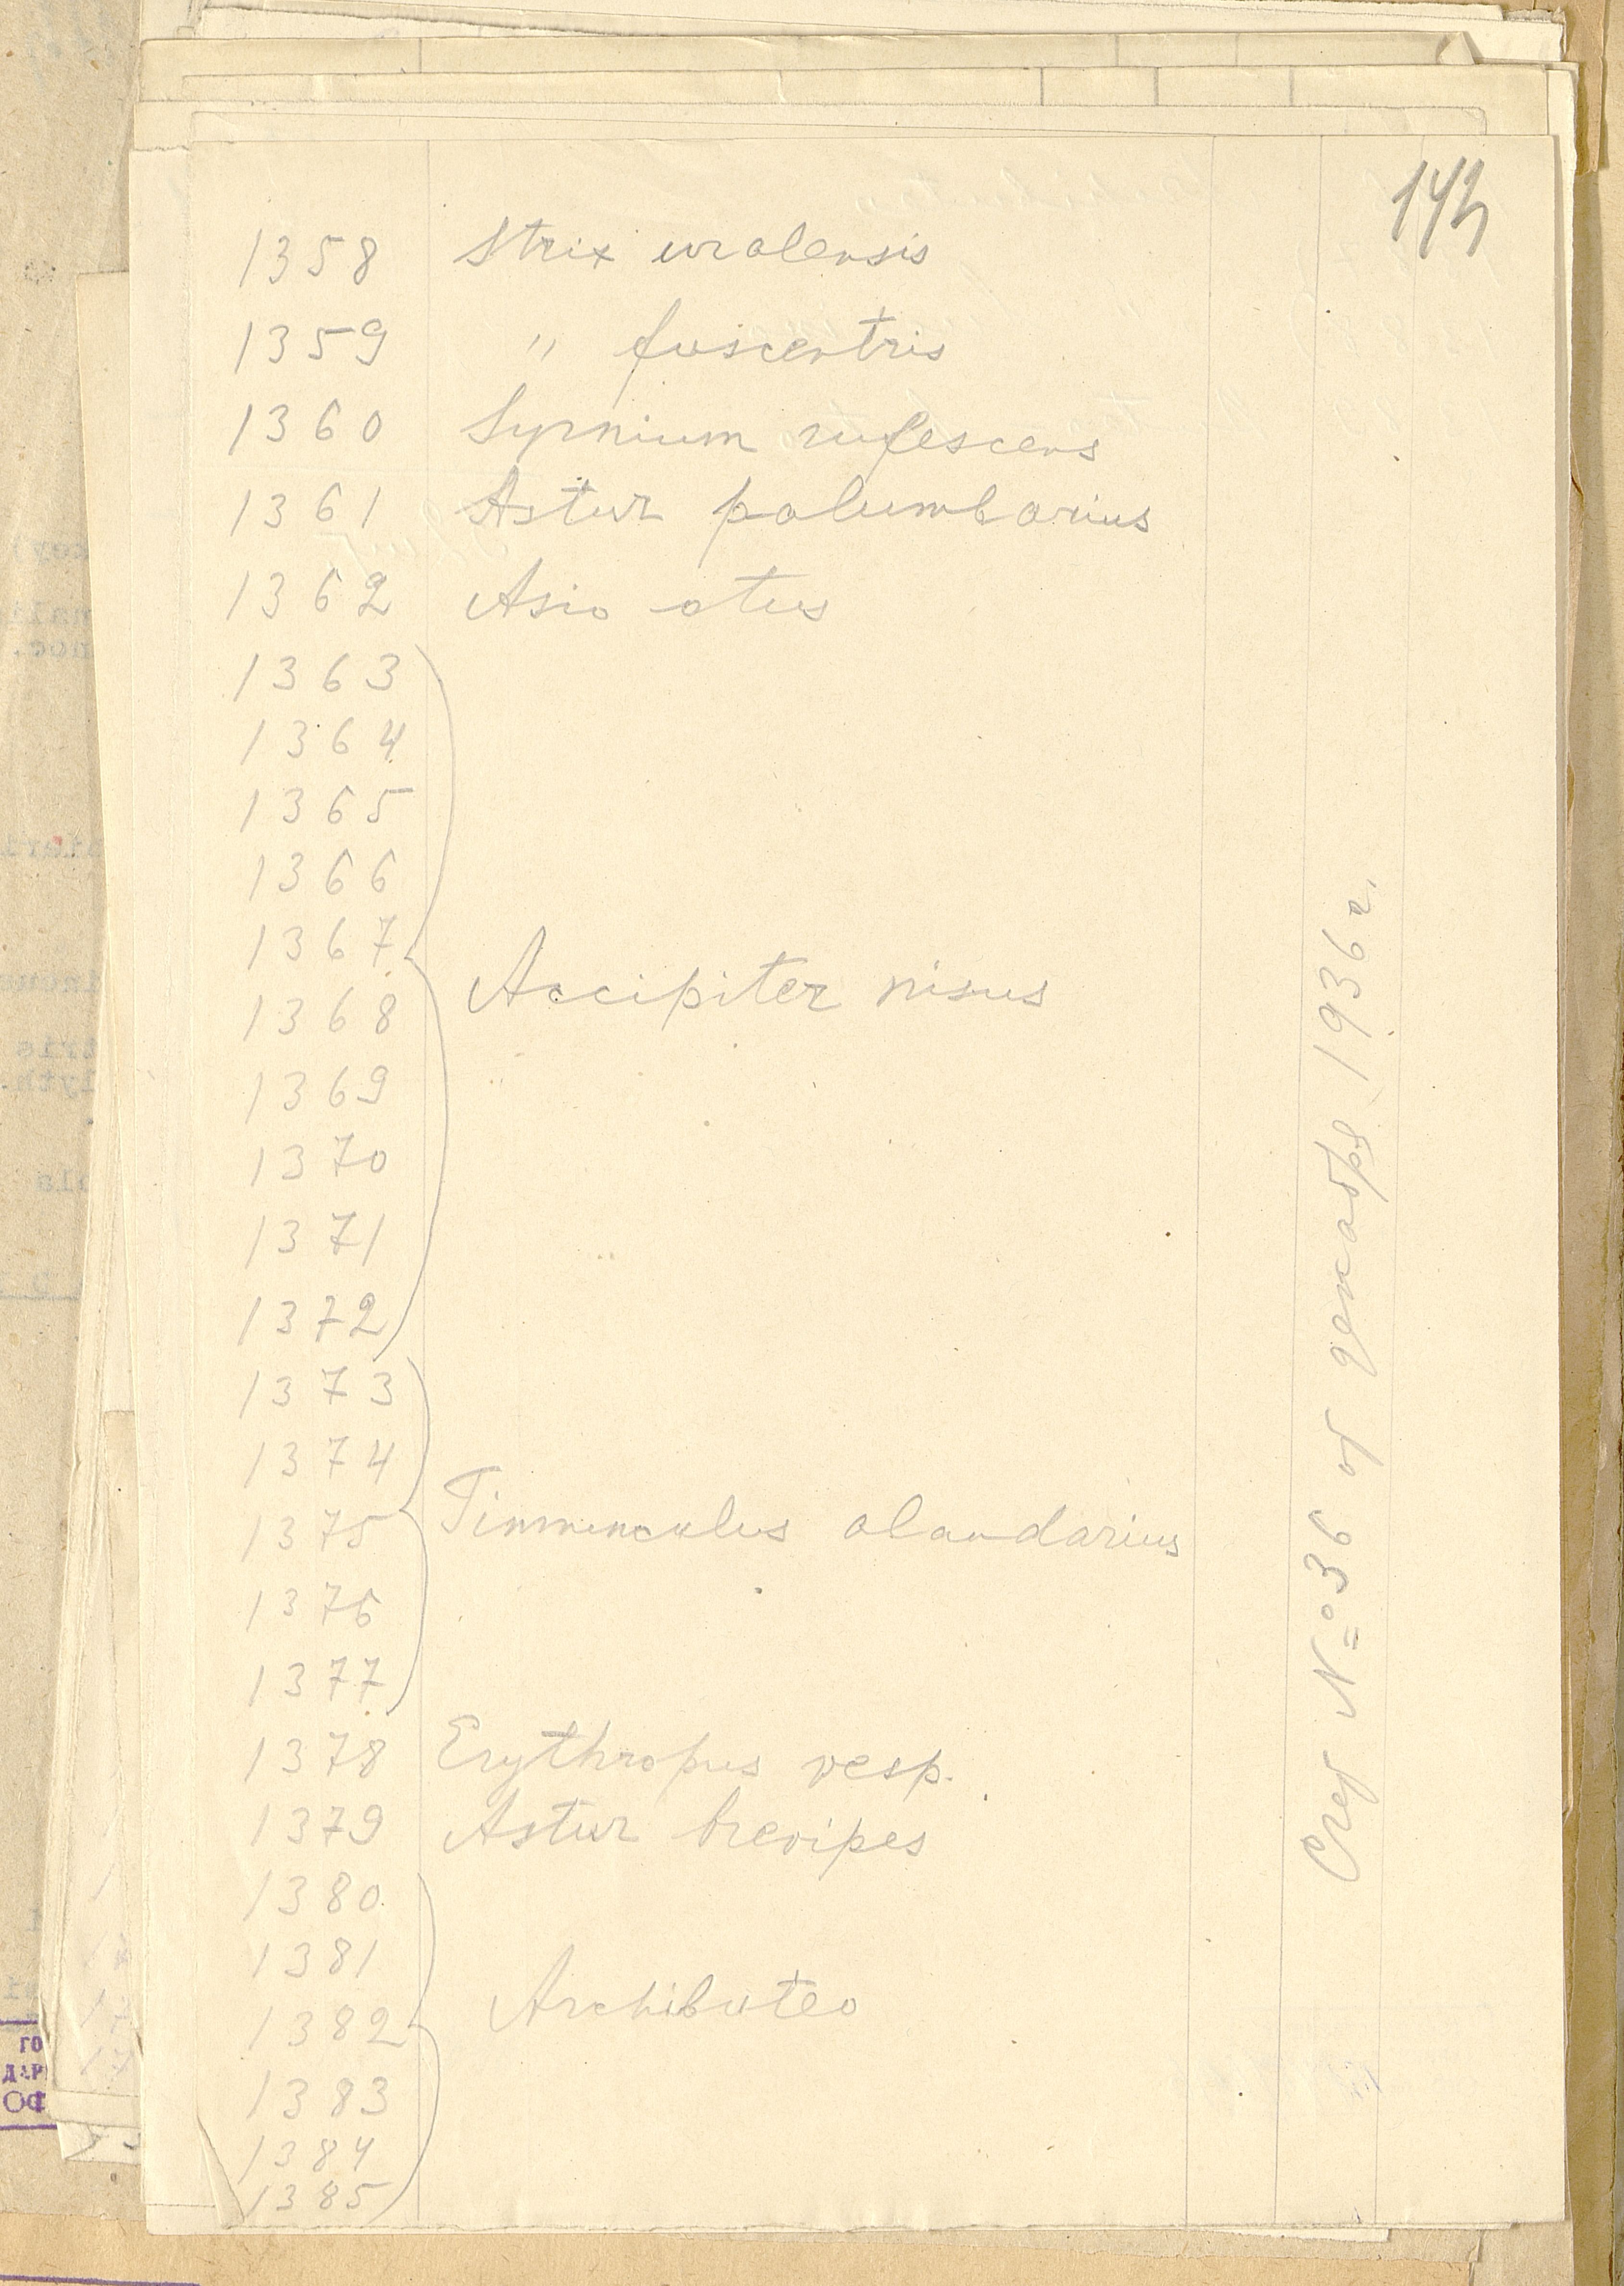 143
1358 Strix uralensis
1359 " fuscentris
1360 Syrnium rufescens
1361 Astur palumbarius
1362 Asio otus
1363
1364
1365
1366
1367
1368 Accipiter nisus
1369
1370
1371
1372
1373
1374
1375 Tinnunculus alaudarius
1376
1377
1378 Erythropus vesp.
1379 Astur brevipes
1380
1381
1382 Archibuteo
1383
1384
1385
Счет № 36 от декабря 1936 г.